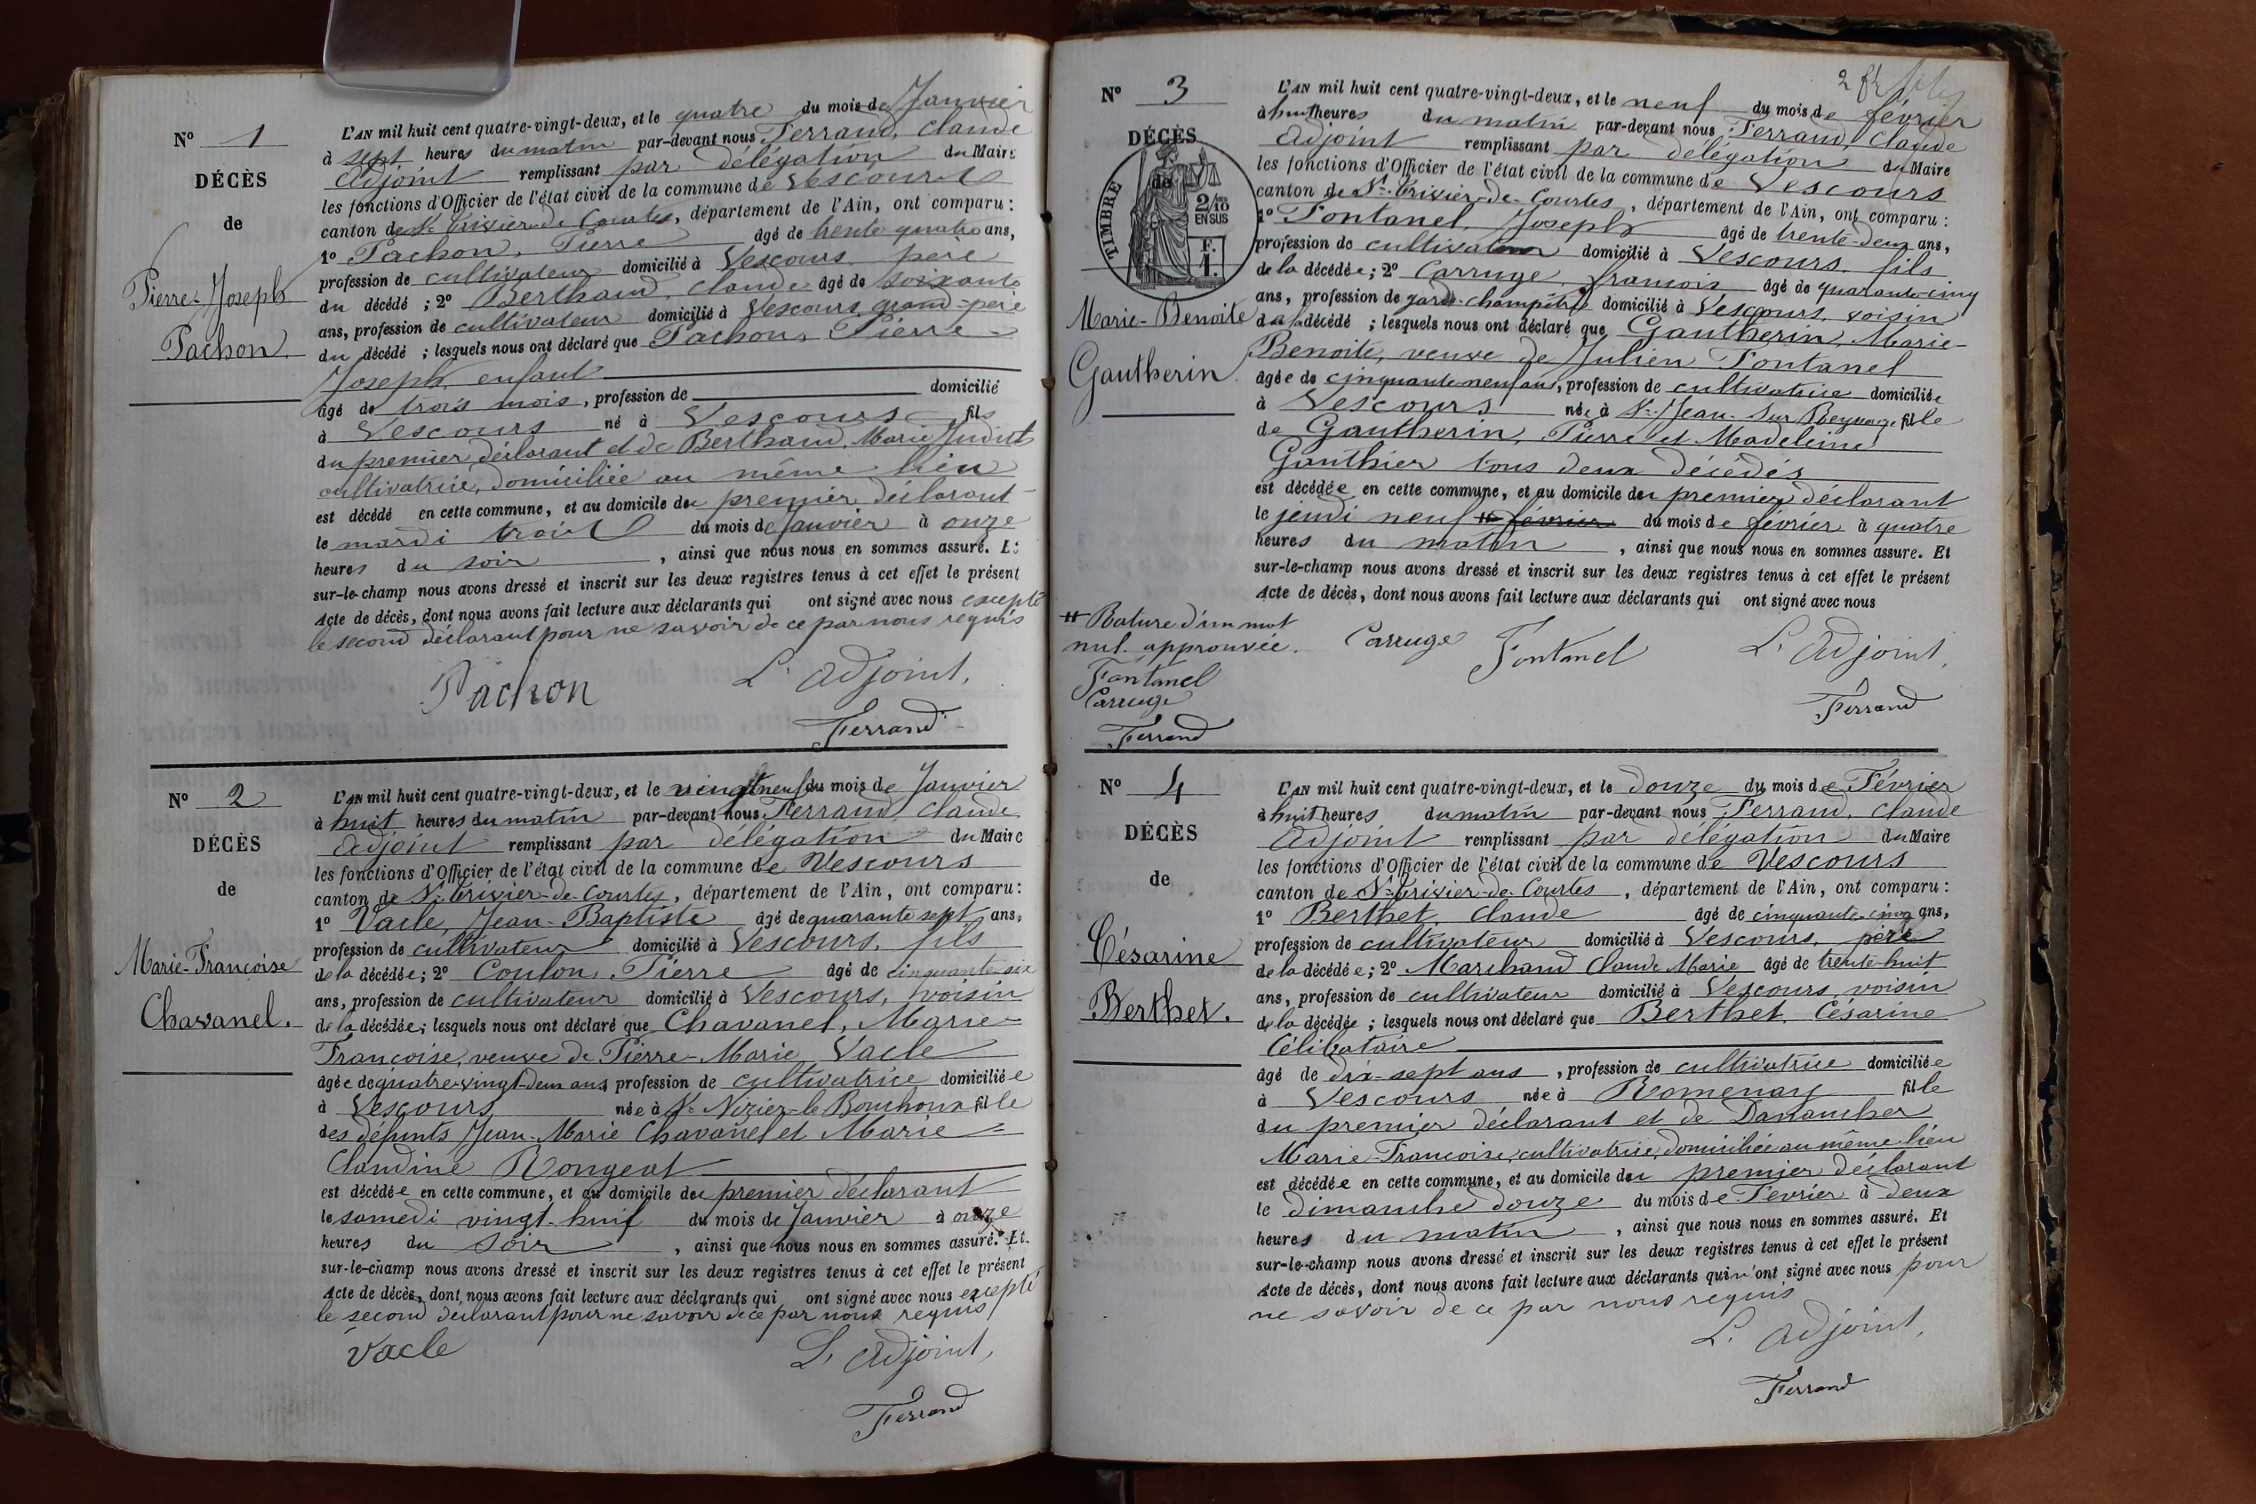 N° 1
DÉCÈS
de
Pierre-Joseph
Pachon.
L'AN mil huit cent quatre-vingt-deux, et le quatre du mois de Janvier
à sept heures du matin par-devant nous Ferrand, Claude
Adjoint remplissant par délégation du Maire
les fonctions d'Officier de l'état civil de la commune de Vescours
canton de St Trivier-de-Courtes, département de l'Ain, ont comparu :
1° Pachon, Pierre âgé de trente quatre ans,
profession de cultivateur domicilié à Vescours, père
du décédé ; 2° Berthaud, Claude âgé de soixante
ans, profession de cultivateur domicilié à Vescours, grand-père
du décédé ; lesquels nous ont déclaré que Pachon, Pierre
Joseph, enfant
âgé de trois mois, profession de domicilié
à Vescours né à Vescours fils
du premier déclarant et de Berthaud, Marie
cultivatrice, domiciliée au même lieu
est décédé en cette commune, et au domicile du premier déclarant
le mardi trois du mois de Janvier à onze
heures du soir, ainsi que nous nous en sommes assuré. Et
sur-le-champ nous avons dressé et inscrit sur les deux registres tenus à cet effet le présent
Acte de décès, dont nous avons fait lecture aux déclarants qui ont signé avec nous excepté
le second déclarant pour ne savoir de ce par nous requis
Pachon L'Adjoint,
Ferrand
N° 2
DÉCÈS
de
Marie-Françoise
Chavanel.
L'AN mil huit cent quatre-vingt-deux, et le vingt neuf du mois de Janvier
à huit heures du matin par-devant nous Ferrand, Claude
Adjoint remplissant par délégation du Maire
les fonctions d'Officier de l'état civil de la commune de Vescours
canton de St Trivier-de-Courtes, département de l'Ain, ont comparu :
1° Vacle, Jean-Baptiste âgé de quarante sept ans,
profession de cultivateur domicilié à Vescours, fils
de la décédée ; 2° Coulon, Pierre âgé de cinquante-six
ans, profession de cultivateur domicilié à Vescours, voisin
de la décédée ; lesquels nous ont déclaré que Chavanel, Marie-
Françoise, veuve de Pierre-Marie Vacle
âgée de quatre-vingt-deux ans, profession de cultivatrice domiciliée
à Vescours née à St Nizier-le-Bouchoux fille
des défunts Jean-Marie Chavanel et Marie
Claudine Rongeat
est décédée en cette commune, et au domicile du premier déclarant
le samedi vingt-huit du mois de Janvier à onze
heures du soir, ainsi que nous nous en sommes assuré. Et
sur-le-champ nous avons dressé et inscrit sur les deux registres tenus à cet effet le présent
Acte de décès, dont nous avons fait lecture aux déclarants qui ont signé avec nous excepté
le second déclarant pour ne savoir de ce par nous requis
Vacle L'Adjoint,
Ferrand
N° 3
DÉCÈS
de
TIMBRE
2/10
EN SUS
F.
1.
Marie-Benoite
Gautherin.
L'AN mil huit cent quatre-vingt-deux, et le neuf du mois de février
à huit heures du matin par-devant nous Ferrand, Claude
Adjoint remplissant par délégation du Maire
les fonctions d'Officier de l'état civil de la commune de Vescours
canton de St Trivier-de-Courtes, département de l'Ain, ont comparu :
1° Fontanel, Joseph âgé de trente-deux ans,
profession de cultivateur domicilié à Vescours, fils
de la décédée ; 2° Carruge, françois âgé de quarante-cinq
ans, profession de garde-champêtre domicilié à Vescours, voisin
de la décédé ; lesquels nous ont déclaré que Gautherin, Marie-
Benoite, veuve de Julien Fontanel
âgée de cinquante-neuf ans, profession de cultivatrice domiciliée
à Vescours née à St Jean-sur-Reyssouze fille
de Gautherin, Pierre et Madeleine
Gauthier tous deux décédés
est décédée en cette commune, et au domicile du premier déclarant
le jeudi neuf # février du mois de février à quatre
heures du matin, ainsi que nous nous en sommes assuré. Et
sur-le-champ nous avons dressé et inscrit sur les deux registres tenus à cet effet le présent
Acte de décès, dont nous avons fait lecture aux déclarants qui ont signé avec nous
# Rature d'un mot
nul. approuvée.
Fontanel
Carruge
Ferrand
Carruge Fontanel L'Adjoint,
Ferrand
N° 4
DÉCÈS
de
Césarine
Berthet.
L'AN mil huit cent quatre-vingt-deux, et le douze du mois de Février
à huit heures du matin par-devant nous Ferrand, Claude
Adjoint remplissant par délégation du Maire
les fonctions d'Officier de l'état civil de la commune de Vescours
canton de St Trivier-de-Courtes, département de l'Ain, ont comparu :
1° Berthet, Claude âgé de cinquante-cinq ans,
profession de cultivateur domicilié à Vescours, père
de la décédée ; 2° Marchand Claude Marie âgé de trente-huit
ans, profession de cultivateur domicilié à Vescours, voisin
de la décédée ; lesquels nous ont déclaré que Berthet, Césarine
Célibataire
âgé de dix-sept ans, profession de cultivatrice domiciliée
à Vescours née à Romenay fille
du premier déclarant et de Danancher
Marie-Françoise, cultivatrice, domiciliée au même lieu
est décédée en cette commune, et au domicile du premier déclarant
le dimanche douze du mois de Février à deux
heures du matin, ainsi que nous nous en sommes assuré. Et
sur-le-champ nous avons dressé et inscrit sur les deux registres tenus à cet effet le présent
Acte de décès, dont nous avons fait lecture aux déclarants qui n'ont signé avec nous pour
ne savoir de ce par nous requis
L'Adjoint,
Ferrand